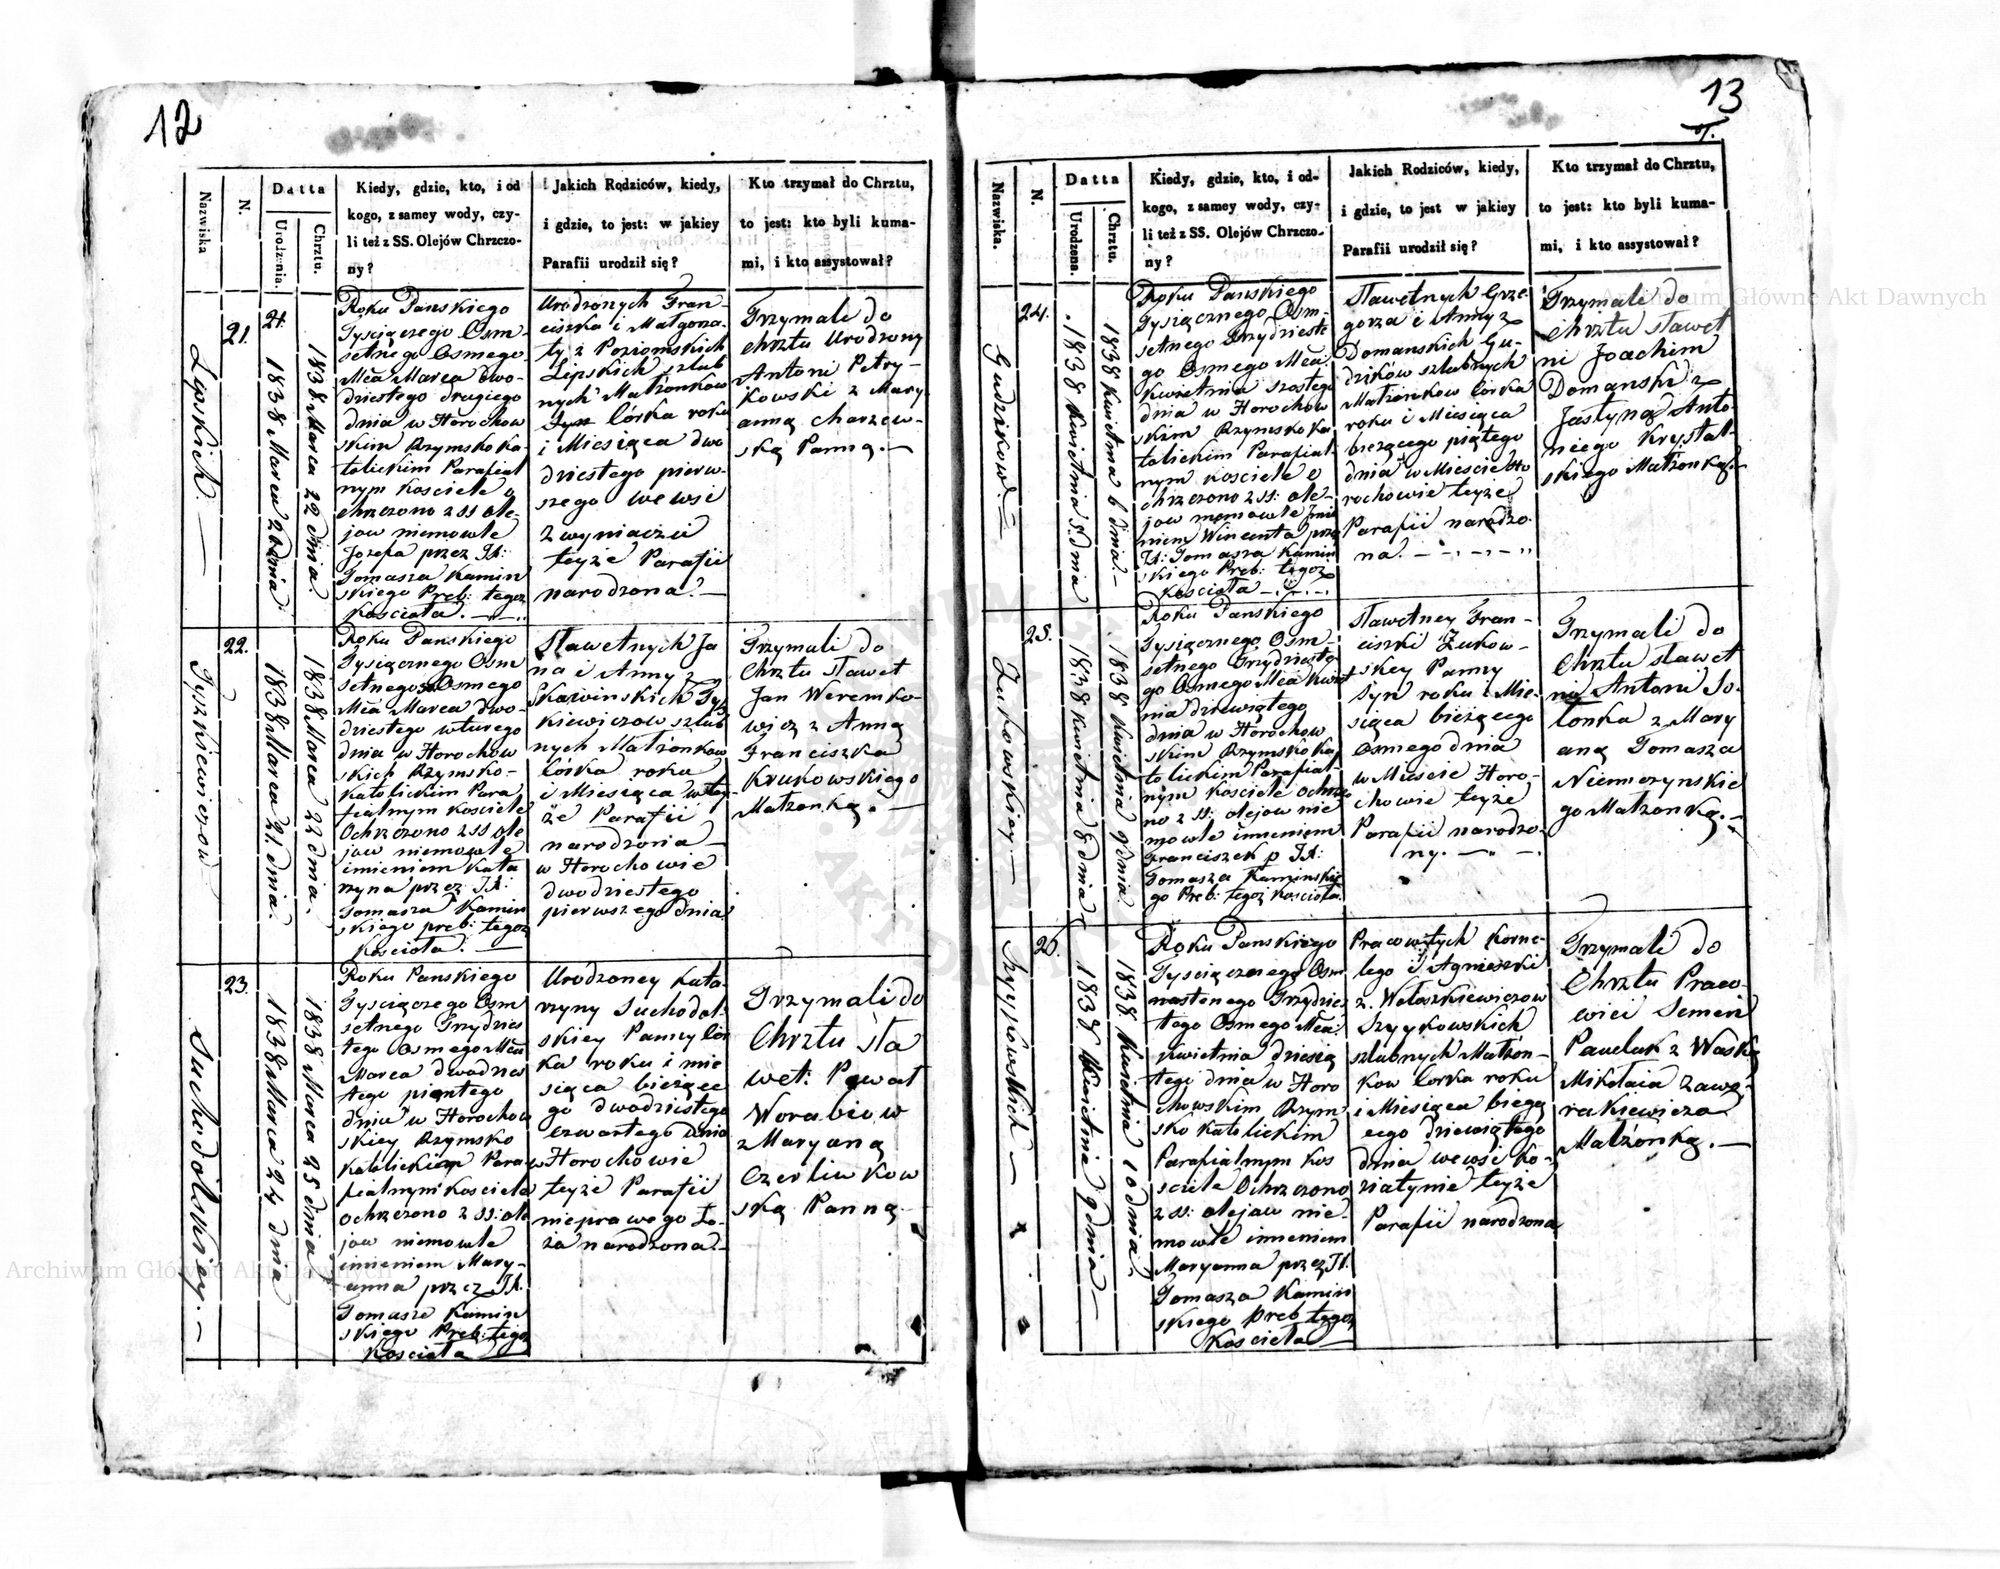 12
Nazwiska
N.
Datta
Urodzenia.
Chrztu.
Kiedy, gdzie, kto, i od
kogo, z samey wody, czy-
li też z SS. Olejów Chrzczo-
ny?
Jakich Rodziców, kiedy,
i gdzie, to jest: w jakiey
Parafii urodził się?
Kto trzymał do Chrztu,
to jest: kto byli kuma-
mi, i kto assystował?
Lipskich.
21.
21.
1838 Marca dnia
1838 Marca 22 dnia.
Roku Panskiego
Tysiączego Osm-
setnego Osmego
Mca Marca dwo-
dziestego drugiego
dnia w Horochow
skim Rzymsko Ka-
tolickim Parafial
nym Kosciele o
chrzczono z SS Ole-
jow niemowle
Jozefa przez JX:
Tomasza Kamin
skiego Preb: tegoz
Kosciola.
Urodzonych Fran-
ciszka i Małgorza-
ty z Poziomskich
Lipskich szlub
nych Małżonkow
Corka roku
i Miesiąca dwo
dziestego pierw-
szego we wsi
Zwyniaczu
teyże Parafii
narodzona.
Trzymali do
chrztu Urodzony
Antoni Petry-
kowski z Mary-
anną Charzew-
ską Panną.
Tyszkiewiczow
22.
1838 Marca 21. dnia.
1838 Marca 22 dnia.
Roku Panskiego
Tysiącznego Osm
setnego Osmego
Mca Marca dwo-
dziestego wturego
dnia w Horochow
skich Rzymsko-
Katolickim Para
fialnym Kosciele
Ochrzczono z SS Ole
jow niemowle
imieniem Kata
rzyna przez JX:
Tomasza Kamin
skiego preb: tegoz
Kosciola.
Sławetnych Ja
na i Anny z
Skawinskich Tysz
kiewiczow szlub
nych Małżonkow
Córka roku
i Miesiąca w tey-
że Parafii
narodzona
w Horochowie
dwodziestego
pierwszego dnia
Trzymali do
Chrztu Sławet
Jan Weremko-
wicz z Anną
Franciszka
Krukowskiego
Małżonką.
Suchodolskiey.
23.
1838 Marca 24 dnia
1838 Marca 25 dnia
Roku Panskiego
Tysciączego Osm
setnego Trzydzies
tego Osmego Mca
Marca dwodzies
tego piontego
dnia w Horochow
skiey Rzymsko
Katolickiem Para
fialnym Kosciele
Ochrzczono z SS: Ole
jow niemowle
imieniem Mary-
anna przez JX.
Tomasza Kamin
skiego Preb: tegoz
Kosciola
Urodzoney Kata-
rzyny Suchodol-
skiey Panny Cor
ka roku i mie
siąca bieżące
go dwodziestego
czwartego dnia
w Horochowie
teyże Parafii
nieprawego Ło-
ża narodzona.
Trzymali do
Chrztu Sła
wet: Pawał
Worabiow
z Maryaną
Czerlinkow
ską Panną.
13
Nazwiska.
N.
Datta
Urodzena.
Chrztu.
Kiedy, gdzie, kto, i od-
kogo, z samey wody, czy-
li też z SS. Olejów Chrzczo-
ny?
Jakich Rodziców, kiedy,
i gdzie, to jest w jakiey
Parafii urodził się?
Kto trzymał do Chrztu,
to jest: kto byli kuma-
mi, i kto assystował?
Gudzikow.
24.
1838 Kwietnia 5. dnia
1838 Kwietnia 6 dnia.
Roku Panskiego
Tysiącznego Osm-
setnego Trzydzieste
go Osmego Mca
Kwietnia szostego
dnia w Horochow
skim Rzymsko Ka
tolickim Parafial-
nym Kosciele o
chrzczono z SS: Ole-
jow niemowle Imie
niem Wincenta przez
JX: Tomasza Kamin
skiego Preb: tegoz
Kosciola
Sławetnych Grze-
gorza i Anny z
Domanskich Gu-
dzików szlubnych
Małżonkow Corka
roku i Miesiąca
bieżącego piątego
dnia w Miescie Ho
rochowie teyże
Parafii narodzo-
na.
Trzymali do
Chrztu Sławet
ni Joachim
Domanski z
Justyną Anto-
niego Krystal-
skiego Małżonką.
Żukowskiey
25.
1838 Kwietnia 8 dnia
1838 Kwietnia 9 dnia.
Roku Panskiego
Tysiącznego Osm-
setnego Trzydzieste
go Osmego Mca Kwiet
nia dziewiątego
dnia w Horochow
skim Rzymsko Ka
tolickim Parafial
nym Kosciele Ochrzczo
no z SS: olejow nie
mowle imieniem
Franciszek p JX:
Tomasza Kaminskie
go Preb: tegoż Kosciola.
Sławetney Fran-
ciszki Żukow-
skey Panny
Syn roku i Mie-
siąca bieżącego
Osmego dnia
w Miescie Horo-
chowie teyże
Parafii narodzo-
ny.
Trzymali do
Chrztu Sławet
ni Antoni Jo-
lonka z Mary
aną Tomasza
Niemczynskie
go Małżonką.
Szyykowskich
26.
1838 Kwietnia 9 dnia
1838. Kwietnia 10 dnia.
Roku Panskiego
Tysciącznego Osm
nastenego Trzydzies
tego Osmego Mca
Kwietnia dziesią
tego dnia w Horo
chowskim Rzym
sko Katolickim
Parafialnym Kos
ciele Ochrzczono
z SS: olejow nie-
mowle imieniem
Maryanna przez JX.
Tomasza Kamin
skiego preb tegoz
Kosciola
Pracowitych Korne-
lego i Agnieszki
z Wołoszkiewiczow
Szyykowskich
szlubnych Małżon-
kow Corka roku
i Miesiąca bieżą
cego dziewiątego
dnia we wsi Ko-
ziatynie teyże
Parafii narodzona
Trzymali do
Chrztu Praco-
wici Semen
Pauluk z Waską
Mikołaia Zawe-
rukiewicza
Małżonką.
Archiwum Główne Akt Dawnych
Archiwum Główne Akt Dawnych